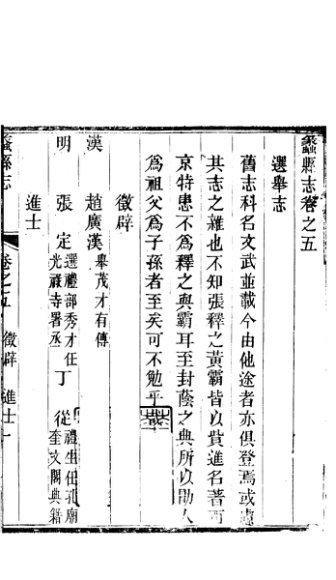 蠡縣志卷之五
選舉志
舊志科名文武並載今由他途者亦俱登焉或
其志之雜也不知張釋之黃霸皆以貲進名著
京特患不爲釋之與霸耳至封蔭之典所以勖人
爲祖父爲子孫者至矣可不勉乎哉
徵辟
漢 趙廣漢 舉茂才有傳
明 張定 選禮部秀才任光祿寺署丞 丁從 禮生任孔廟奎文閣典籍
進士
蠡縣志 卷之五 徵辟 進士 一